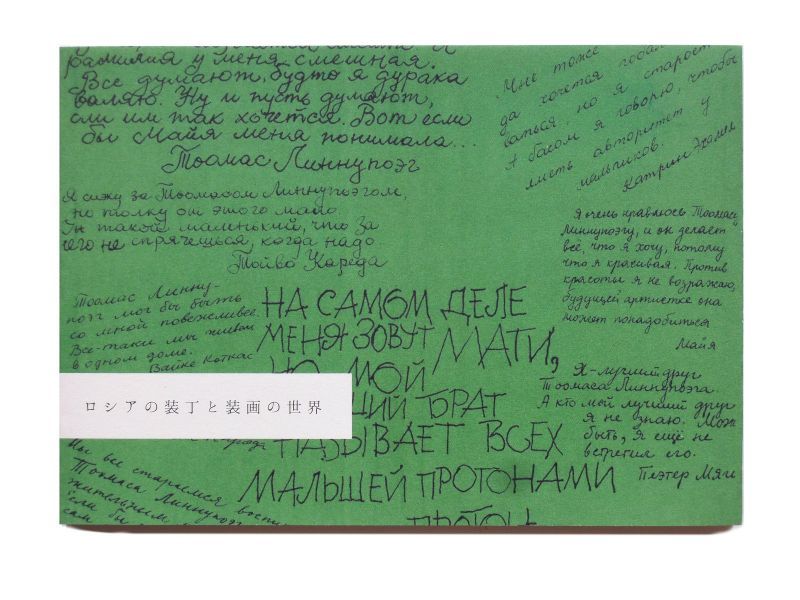 фамилия у меня смешная.
Все думают, будто я дурака
валяю. Ну и пусть думают,
если им так хочется. Вот если
бы Майя меня понимала...
Тоомас Линнупоэг
Мне тоже
да хочется
ваться, но я
А басом я говорю, чтобы
иметь авторитет у
мальчиков.
Катрин Эхамен
Я сижу за Тоомасом Линнупоэгом,
но толку от этого мало.
Он такой маленький, что за
его не спрячешься, когда надо.
Тойво Кареда
Я очень нравлюсь Тоомасу
Линнупоэгу, и он делает
всё, что я хочу, потому
что я красивая. Против
красоты я не возражаю,
будущей артистке она
может понадобиться
Майя
Тоомас Линну-
поэг мог бы быть
со мной повежливее.
Всё-таки мы живём
в одном доме.
Вайке Коткас
НА САМОМ ДЕЛЕ
МЕНЯ ЗОВУТ МАТИ,
НО МОЙ
ШИЙ БРАТ
НАЗЫВАЕТ ВСЕХ
МАЛЫШЕЙ ПРОТОНАМИ
ПРОТОН
Я - лучший друг
Тоомаса Линнупоэга.
А кто мой лучший друг
я не знаю. Мож
быть, я ещё не
встретил его.
Пеэтер Мяги
ロシアの装丁と装画の世界
Мы все стараемся воспи
Тоомаса Линнупоэг
жительным
сам бы